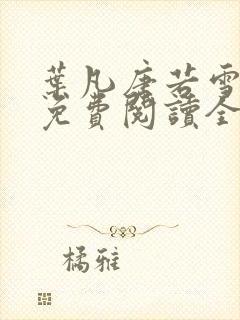 葉凡唐若雪
免費閱讀全
橘雅